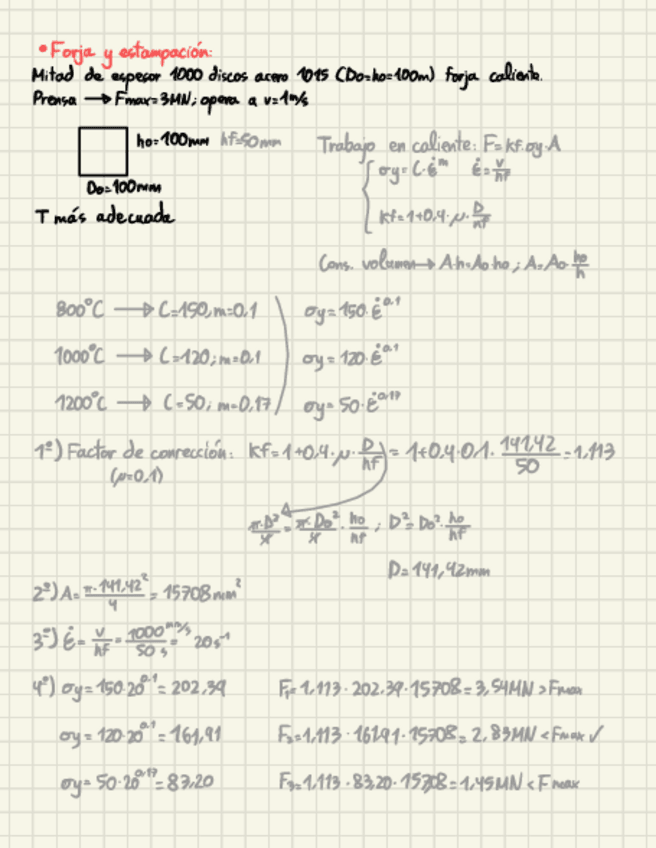 • Forja y estampación:
Mitad de espesor 1000 discos acero 1015 (Do=ho=100m) forja caliente.
Prensa → Fmax=3MN; opera a v=1m/s
ho=100mm hf=50mm
Do=100mm
T más adecuada
Trabajo en caliente: F=kf·σy·A
σy=C·ε̇^m ε̇=v/hf
kf=1+0,4·μ·D/hf
Cons. volumen→A·h=Ao·ho; A=Ao·ho/h
800°C → C=150, m=0.1 σy=150·ε̇^0.1
1000°C → C=120; m=0.1 σy=120·ε̇^0.1
1200°C → C=50; m=0,17 σy=50·ε̇^0,17
1º) Factor de corrección: kf=1+0,4·μ·D/hf = 1+0.4·0,1·141,42/50=1,113
(μ=0,1)
π·D²/4=π·Do²/4·ho/hf ; D²=Do²·ho/hf
D=141,42mm
2º) A=π·141,42²/4=15708mm²
3º) ε̇=v/hf=1000 mm/s/50=20s⁻¹
4º) σy=150·20^0.1=202,39 F₁=1,113·202,39·15708=3,54MN>Fmax
σy=120·20^0.1=161,91 F₂=1,113·161,91·15708=2,83MN<Fmax✓
σy=50·20^0,17=83,20 F₃=1,113·83,20·15708=1,45MN<Fmax